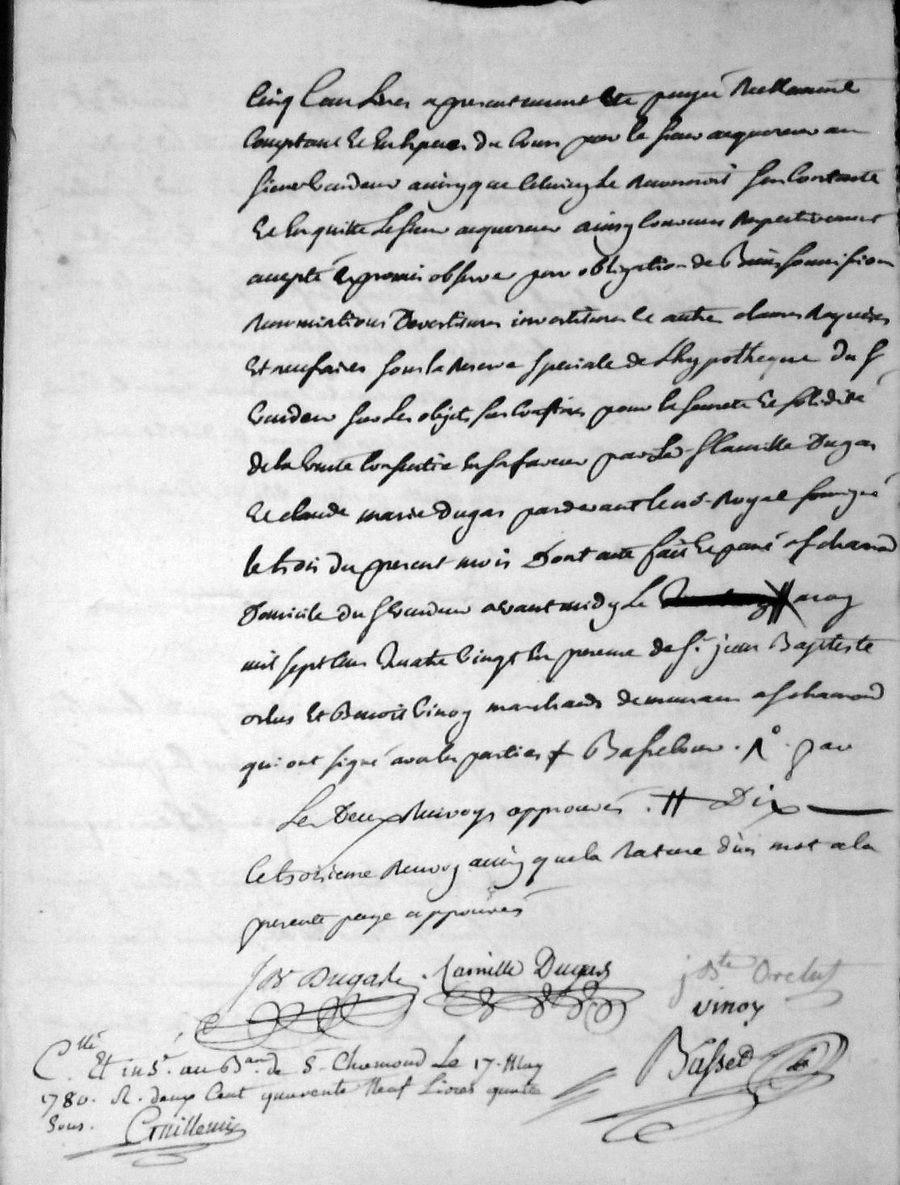 Cinq Cens Livres a presentement ete payée Reellement
Comptant Et En Especes du Cours par le sieur acquereur au
sieur Vendeur ainsy que Celuicy Le Reconnoit s'en Contente
Et En quitte Le sieur acquereur ainsy Convenu Respectivement
accepté Et promis observer par obligation de Biens soumissions
Renonciations Devestitures investitures et autres clauses Requises
Et necessaires sous la Reserve speciale de L'hypotheque du s
Vendeur sur Les objets sus Confinés pour la sureté Et solidité
de la Vente Consentie En sa faveur par Les s Camille Dugas
Et claude marie Dugas pardevant le no. Royal soussigné
le trois du present mois Dont acte fait Et passé a st chamond
Domicile du s Vendeur avant midy Le # may
mil sept Cens Quatre Vingt En presence de Sr. jean Baptiste
orelus Et Benoit Vinoy marchands demeurans a st chamond
qui ont signé avec les parties
Les Deux Renvoys approuvés. # Dix
Le troisieme Renvoy ainsy que la Rature d'un mot a la
presente page approuvés
JB Dugas Camille Dugas jBte Orelut
vinoy
Basset
C.llé Et insé. au Bau. de S. Chamond Le 17. May
1780. R. deux Cent quarente Neuf Livres quatre
Sous. Guillemin